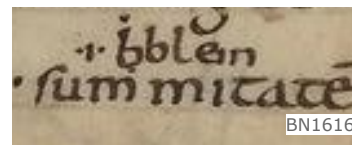 ·i· b̄blein
· summitatē
BN1616